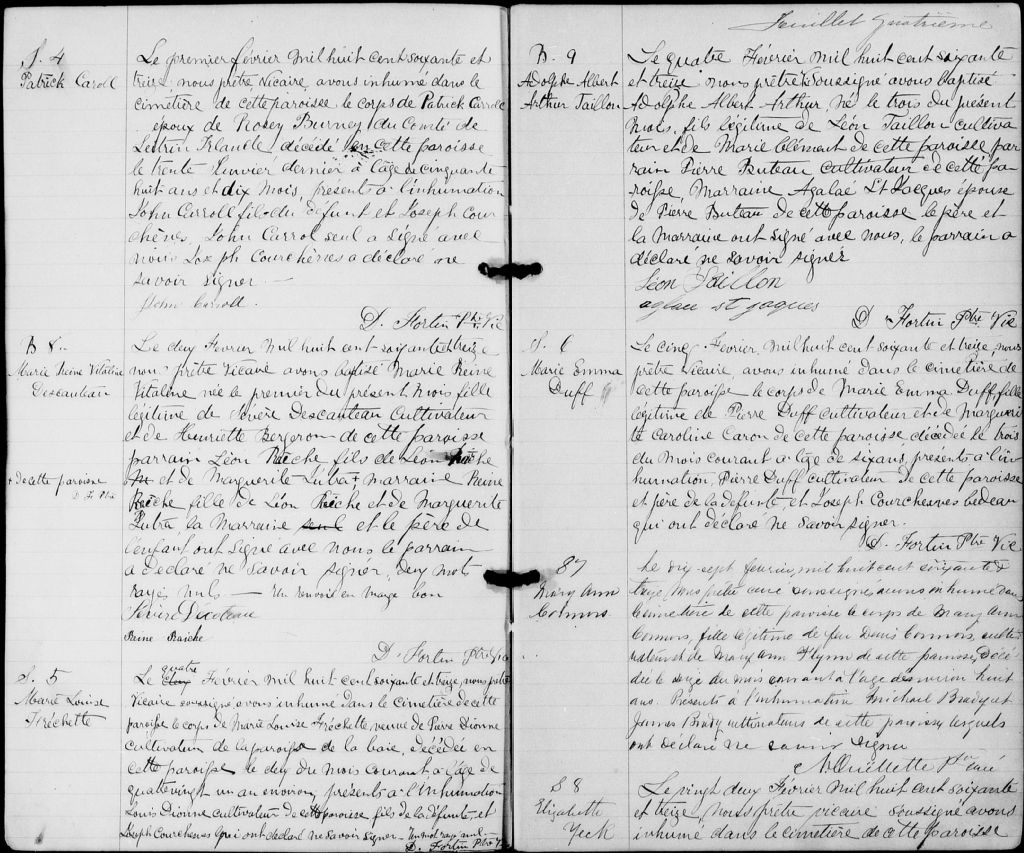 S. 4
Patrick Caroll
Le premier février mil huit cent soixante et
treize, nous prêtre vicaire, avons inhumé dans le
cimetière de cette paroisse le corps de Patrick Carroll
époux de Rosey Burney du Comté de
décédé en cette paroisse
le trente Janvier dernier à l'age de cinquante
huit ans et dix mois, présents à l'inhumation
John Carroll fils du défunt et Joseph Cour
chènes. John Carrol seul a signé avec
nous Joseph Courchènes a déclaré ne
savoir signer.
John Carroll.
D. Fortin Ptre Vic
B 8.
Marie Reine Vitaline
Descauteau
+ de cette paroisse
D. F. Ptre
Le deux Fevrier mil huit cent soixante et treize
nous prêtre Vicaire avons baptisé Marie Reine
Vitaline née le premier du présent mois fille
légitime de Sévère Descauteau Cultivateur
et de Henriette Bergeron de cette paroisse
parrain Léon Raiche fils de Léon Raiche
et de Marguerite Lutra + marraine Reine
Raiche fille de Léon Raiche et de Marguerite
Lutra la Marraine seul et le père de
l'enfant ont signé avec nous le parrain
a déclaré ne savoir signer, deux mots
rayés nuls — Un renvoi en marge bon
Reine Raiche
D. Fortin Ptre Vic
S. 5
Marie Louise
Fréchette
quatre
Le deux Février mil huit cent soixante et treize, nous prêtre
Vicaire soussigné avons inhumé dans le Cimetière de cette
paroisse le corps de Marie Louise Fréchette veuve de Pierre Dionne
cultivateur de la paroisse de la baie, décédée en
cette paroisse le deux du mois courant, à l'age de
quatrevingt un an environ, présents à l'inhumation
Louis Dionne cultivateur de cette paroisse fils de la défunte, et
Joseph Courchesnes qui ont déclaré ne savoir signer – Un mot rayé nul –
D. Fortin Ptre Vic
Feuillet quatrième
B. 9
Adolphe Albert
Arthur Taillon
Le quatre Février mil huit cent soixante
et treize nous prêtre soussigné avons baptisé
Adolphe Albert Arthur né le trois du présent
mois, fils légitime de Léon Taillon cultiva
teur et de Marie Clément de cette paroisse par
rain Pierre Buteau cultivateur de cette pa
roisse, Marraine Agalaé St Jacques épouse
de Pierre Buteau de cette paroisse le père et
la Marraine ont signé avec nous, le parrain a
déclaré ne savoir signer
Léon Taillon
aglaee st jaques
D. Fortin Ptre Vic
S. 6
Marie Emma
Duff
Le cinq Fevrier, mil huit cent soixante et treize, nous
prêtre Vicaire, avons inhumé dans le cimetière de
cette paroisse le corps de Marie Emma Duff, fille
légitime de Pierre Duff cultivateur et de Margueri
te Caroline Caron de cette paroisse, décédée le trois
du mois courant à l'age de six ans, présents à l'in
humation, Pierre Duff cultivateur de cette paroisse
et père de la défunte et Joseph Courchesnes bedeau
qui ont déclaré ne savoir signer.
D. Fortin Ptre Vic
S7
Mary Ann
Connors.
Le dix-sept fevrier, mil huit cent soixante &
treize, nous prêtre curé soussigné avons inhumé dans
le cimetière de cette paroisse le corps de Mary Ann
Connors, fille légitime de feu Denis Connors, culti
vateur et de Mary Ann Flynn de cette paroisse, décé
dée le seize du mois courant à l'age d'environ huit
ans. Présents à l'inhumation Michael Brady et
James Brady cultivateurs de cette paroisse, lesquels
ont déclaré ne savoir signer
N. Ouellette Ptre curé
S 8
Elizabeth
Yeck
Le vingt deux Février mil huit cent soixante
et treize, Nous prêtre vicaire soussigné avons
inhumé dans le cimetière de cette paroisse